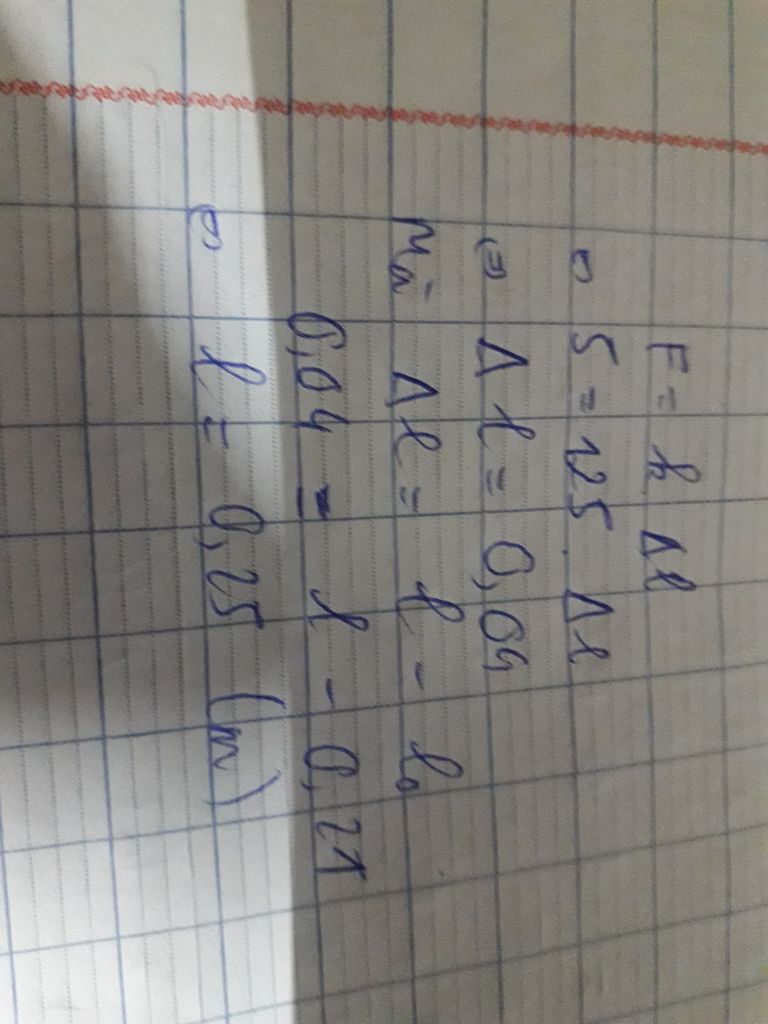 F = k Δl
⇒ 5 = 125 . Δl
⇒ Δl = 0,04
Mà Δl = l - l₀
0,04 = l - 0,21
⇒ l = 0,25 (m)